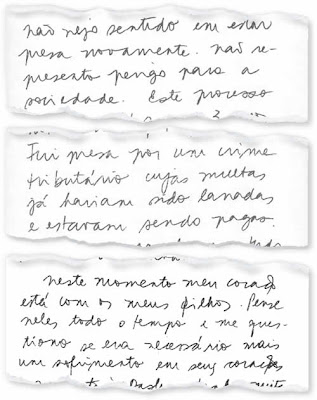 não vejo sentido em estar
presa novamente. não re-
presento perigo para a
sociedade. Este processo
Fui presa por um crime
tributário cujas multas
já haviam sido lançadas
e estavam sendo pagas.
neste momento meu coração
está com os meus filhos. Penso
neles todo o tempo e me ques-
tiono se era necessário mais
um sofrimento em seus corações